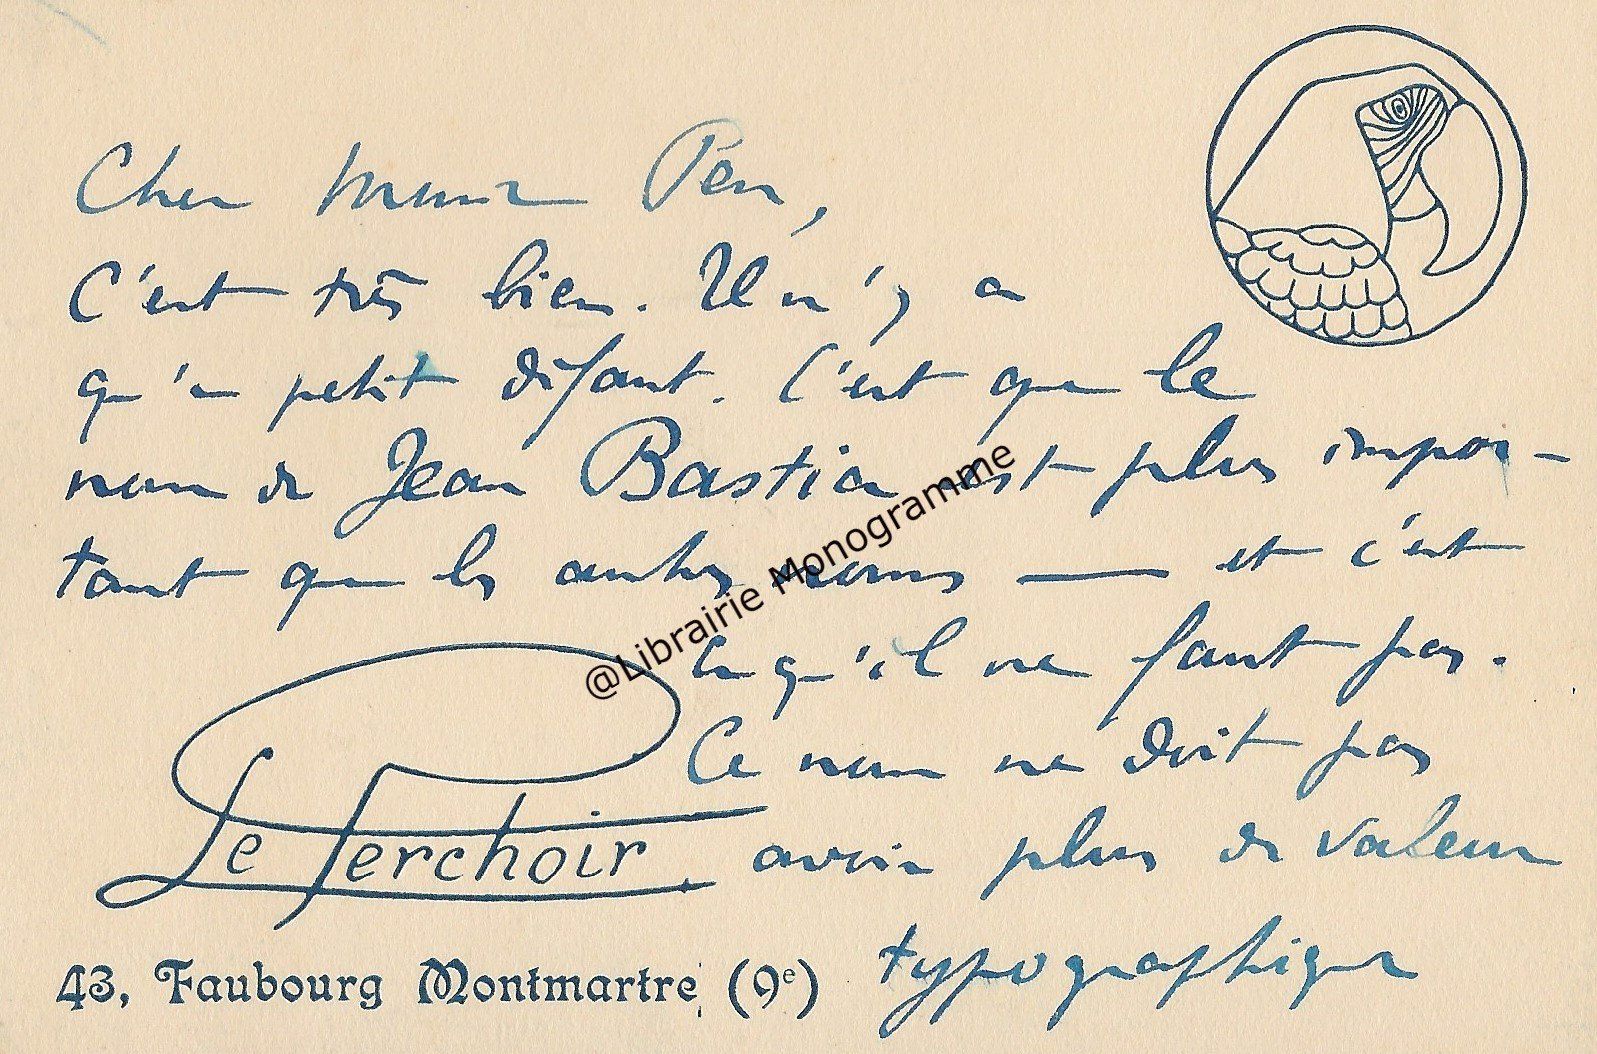 Cher Pen,
C'est très bien. Il n'y a
qu'un petit défaut. C'est que le
nom de Jean Bastia est plus impor-
tant que les autres noms — et c'est
ce qu'il ne faut pas.
Ce nom ne doit pas
avoir plus de valeur
typographique
Le Perchoir.
43, Faubourg Montmartre (9e)
@Librairie Monogramme